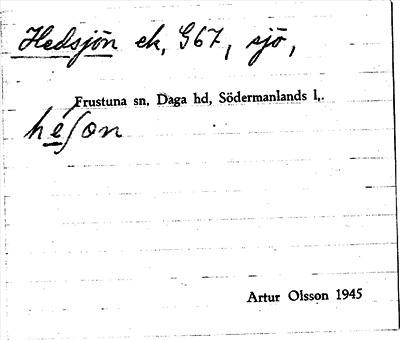 Hedsjön ek, G67, sjö,
Frustuna sn, Daga hd, Södermanlands l,.
héʃon
Artur Olsson 1945